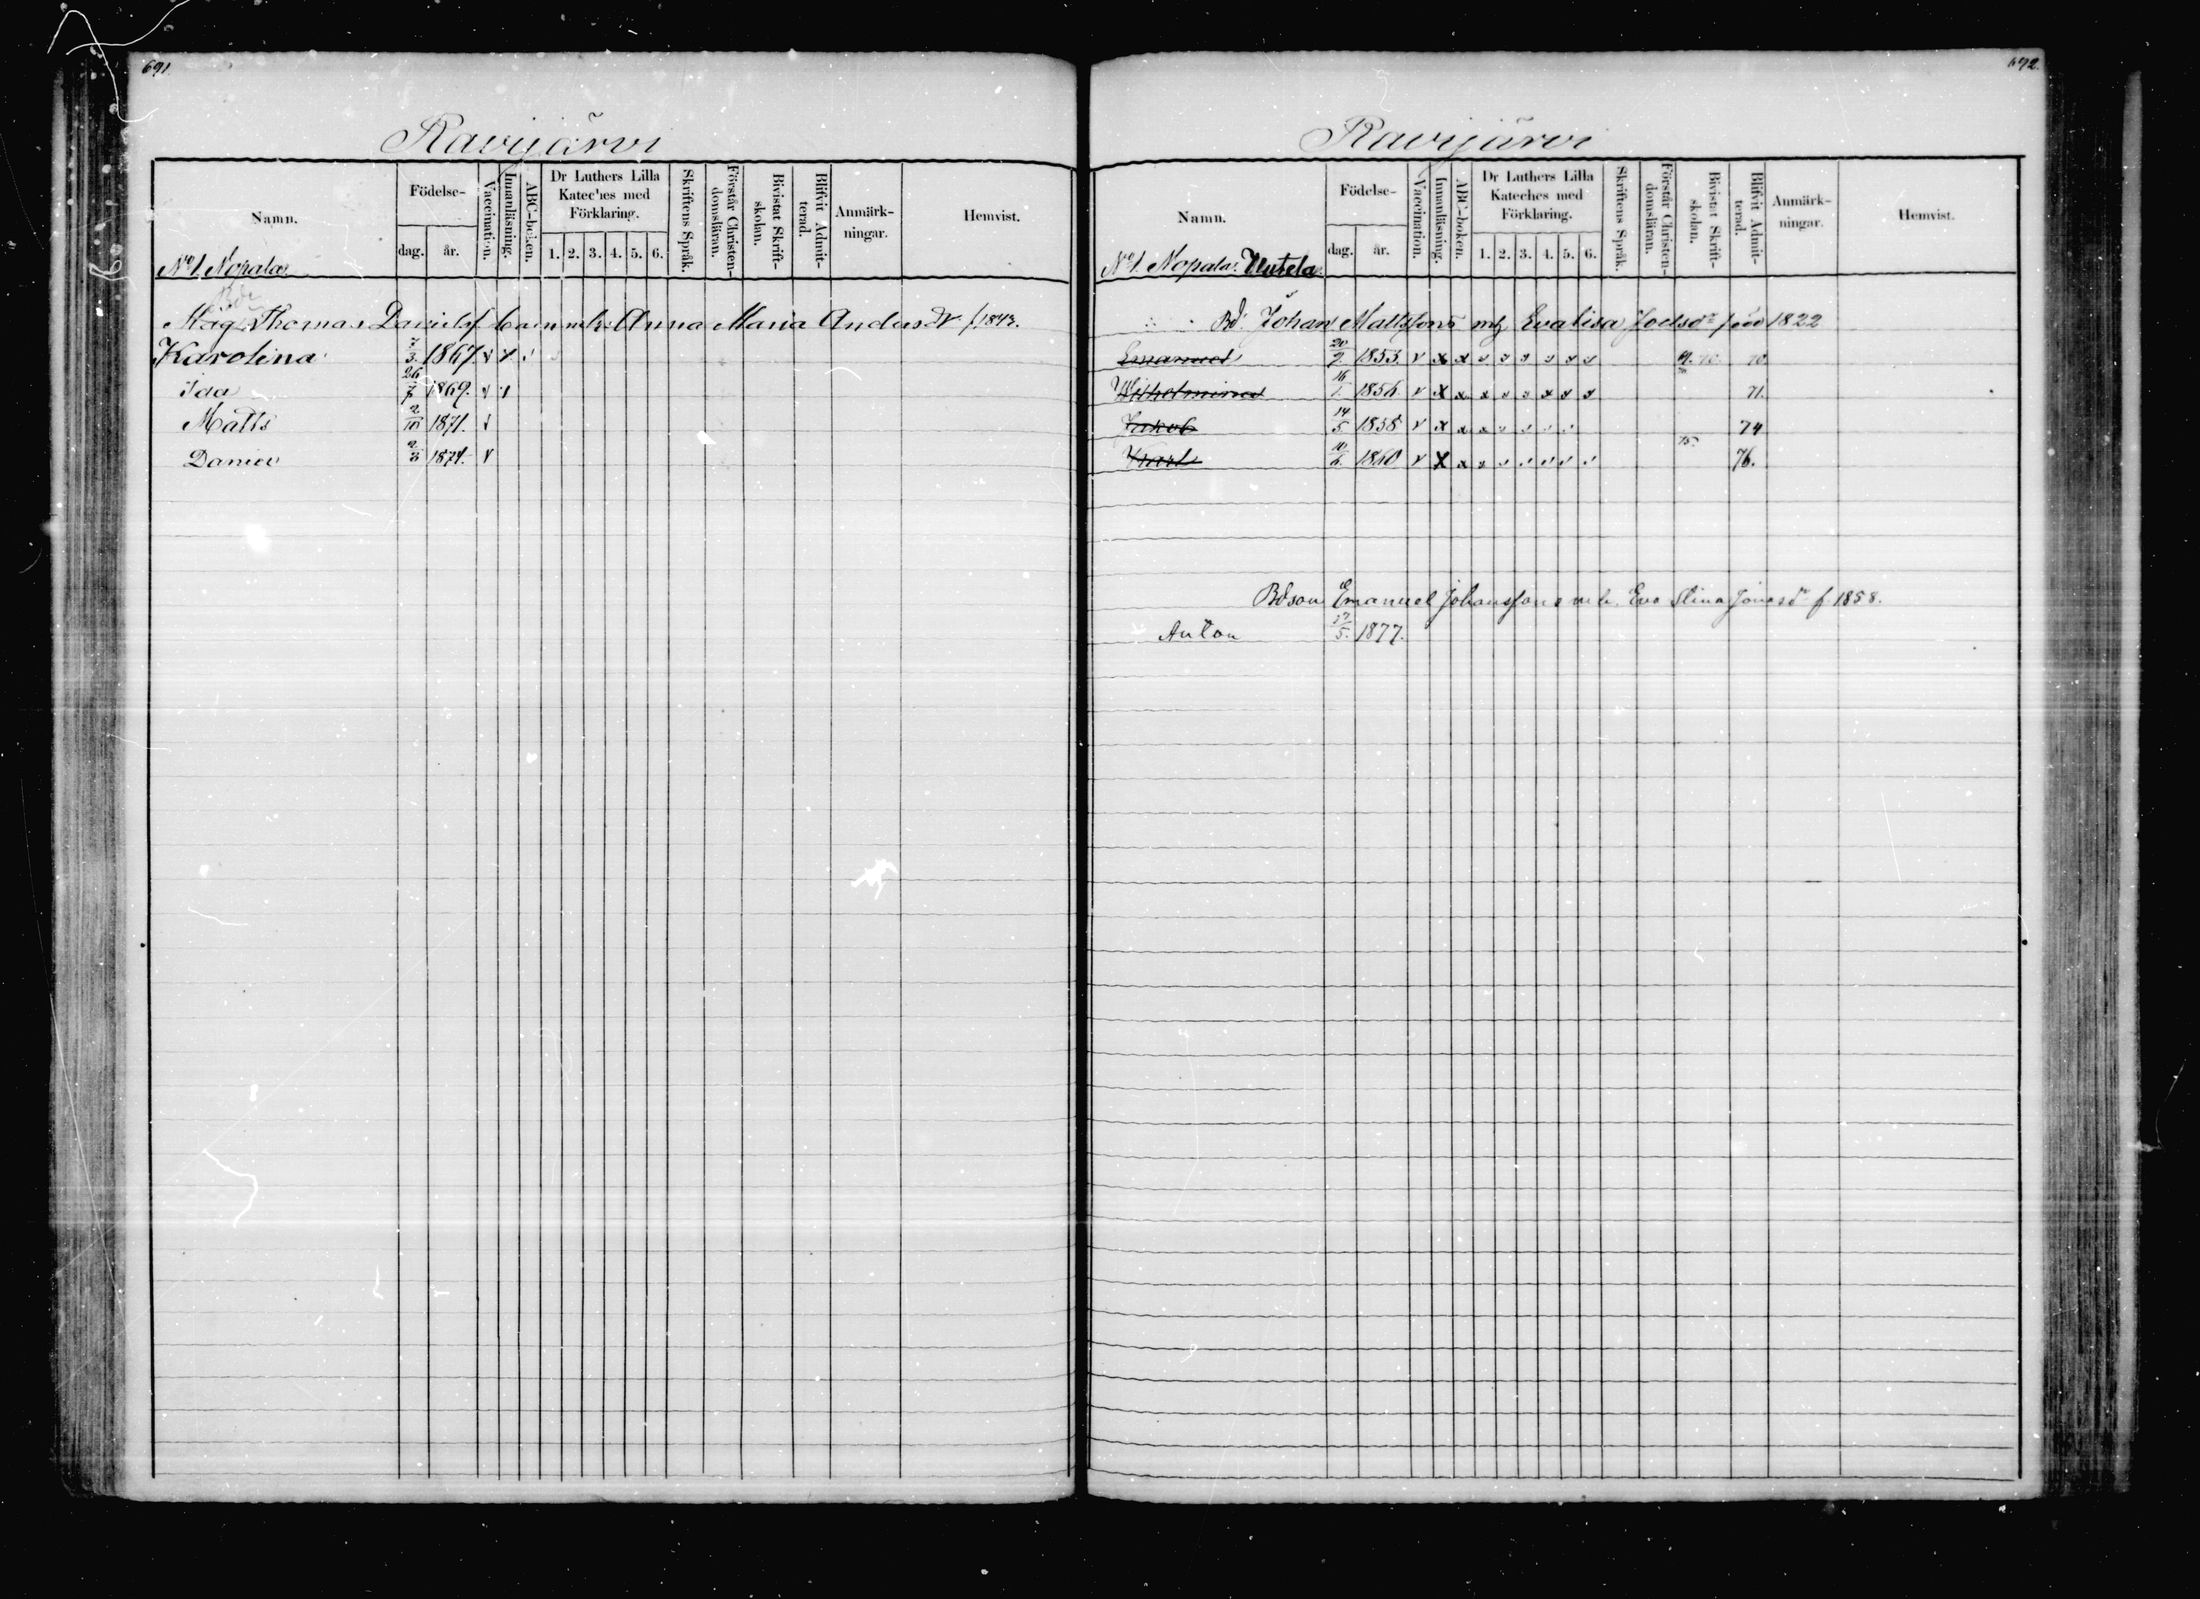 691.
Ravijärvi
Namn.
Födelse-
dag.
år.
Vaccination.
Innanläsning.
ABC-boken.
Dr Luthers Lilla Kateches med Förklaring.
1. 2. 3. 4. 5. 6.
Skriftens Språk.
Förstår Christendomsläran.
Bivistat Skriftskolan.
Blifvit Admitterad.
Anmärk-
ningar.
Hemvist.
No 1. Nopala
Bdr
Måg Thomas Danielsf barn m. h. Anna Maria Andersdr f. 1843.
Karolina 7/3. 1867. v
Ida 26/7 1869. v
Matts 2/10 1871. v
Daniel 2/3 1874. v
692.
Ravijärvi
Namn.
Födelse-
dag.
år.
Vaccination.
Innanläsning.
ABC-boken.
Dr Luthers Lilla Kateches med Förklaring.
1. 2. 3. 4. 5. 6.
Skriftens Språk.
Förstår Christendomsläran.
Bivistat Skriftskolan.
Blifvit Admitterad.
Anmärk-
ningar.
Hemvist.
No 1. Nopala. Uutela.
Bd. Johan Mattsfons mh Evalisa Joelsdr född 1822
Emanuel 20/9. 1853. v x x 70
Wilhelmina 16/1. 1856 v x x 71.
Jakob 14/5 1858 v x x 74
Karl 10/6. 1860 v x x 75. 76.
Bdson Emanuel Johansfons m. h. Eva Stina Jonasdr f. 1858.
Anton 17/5. 1877.